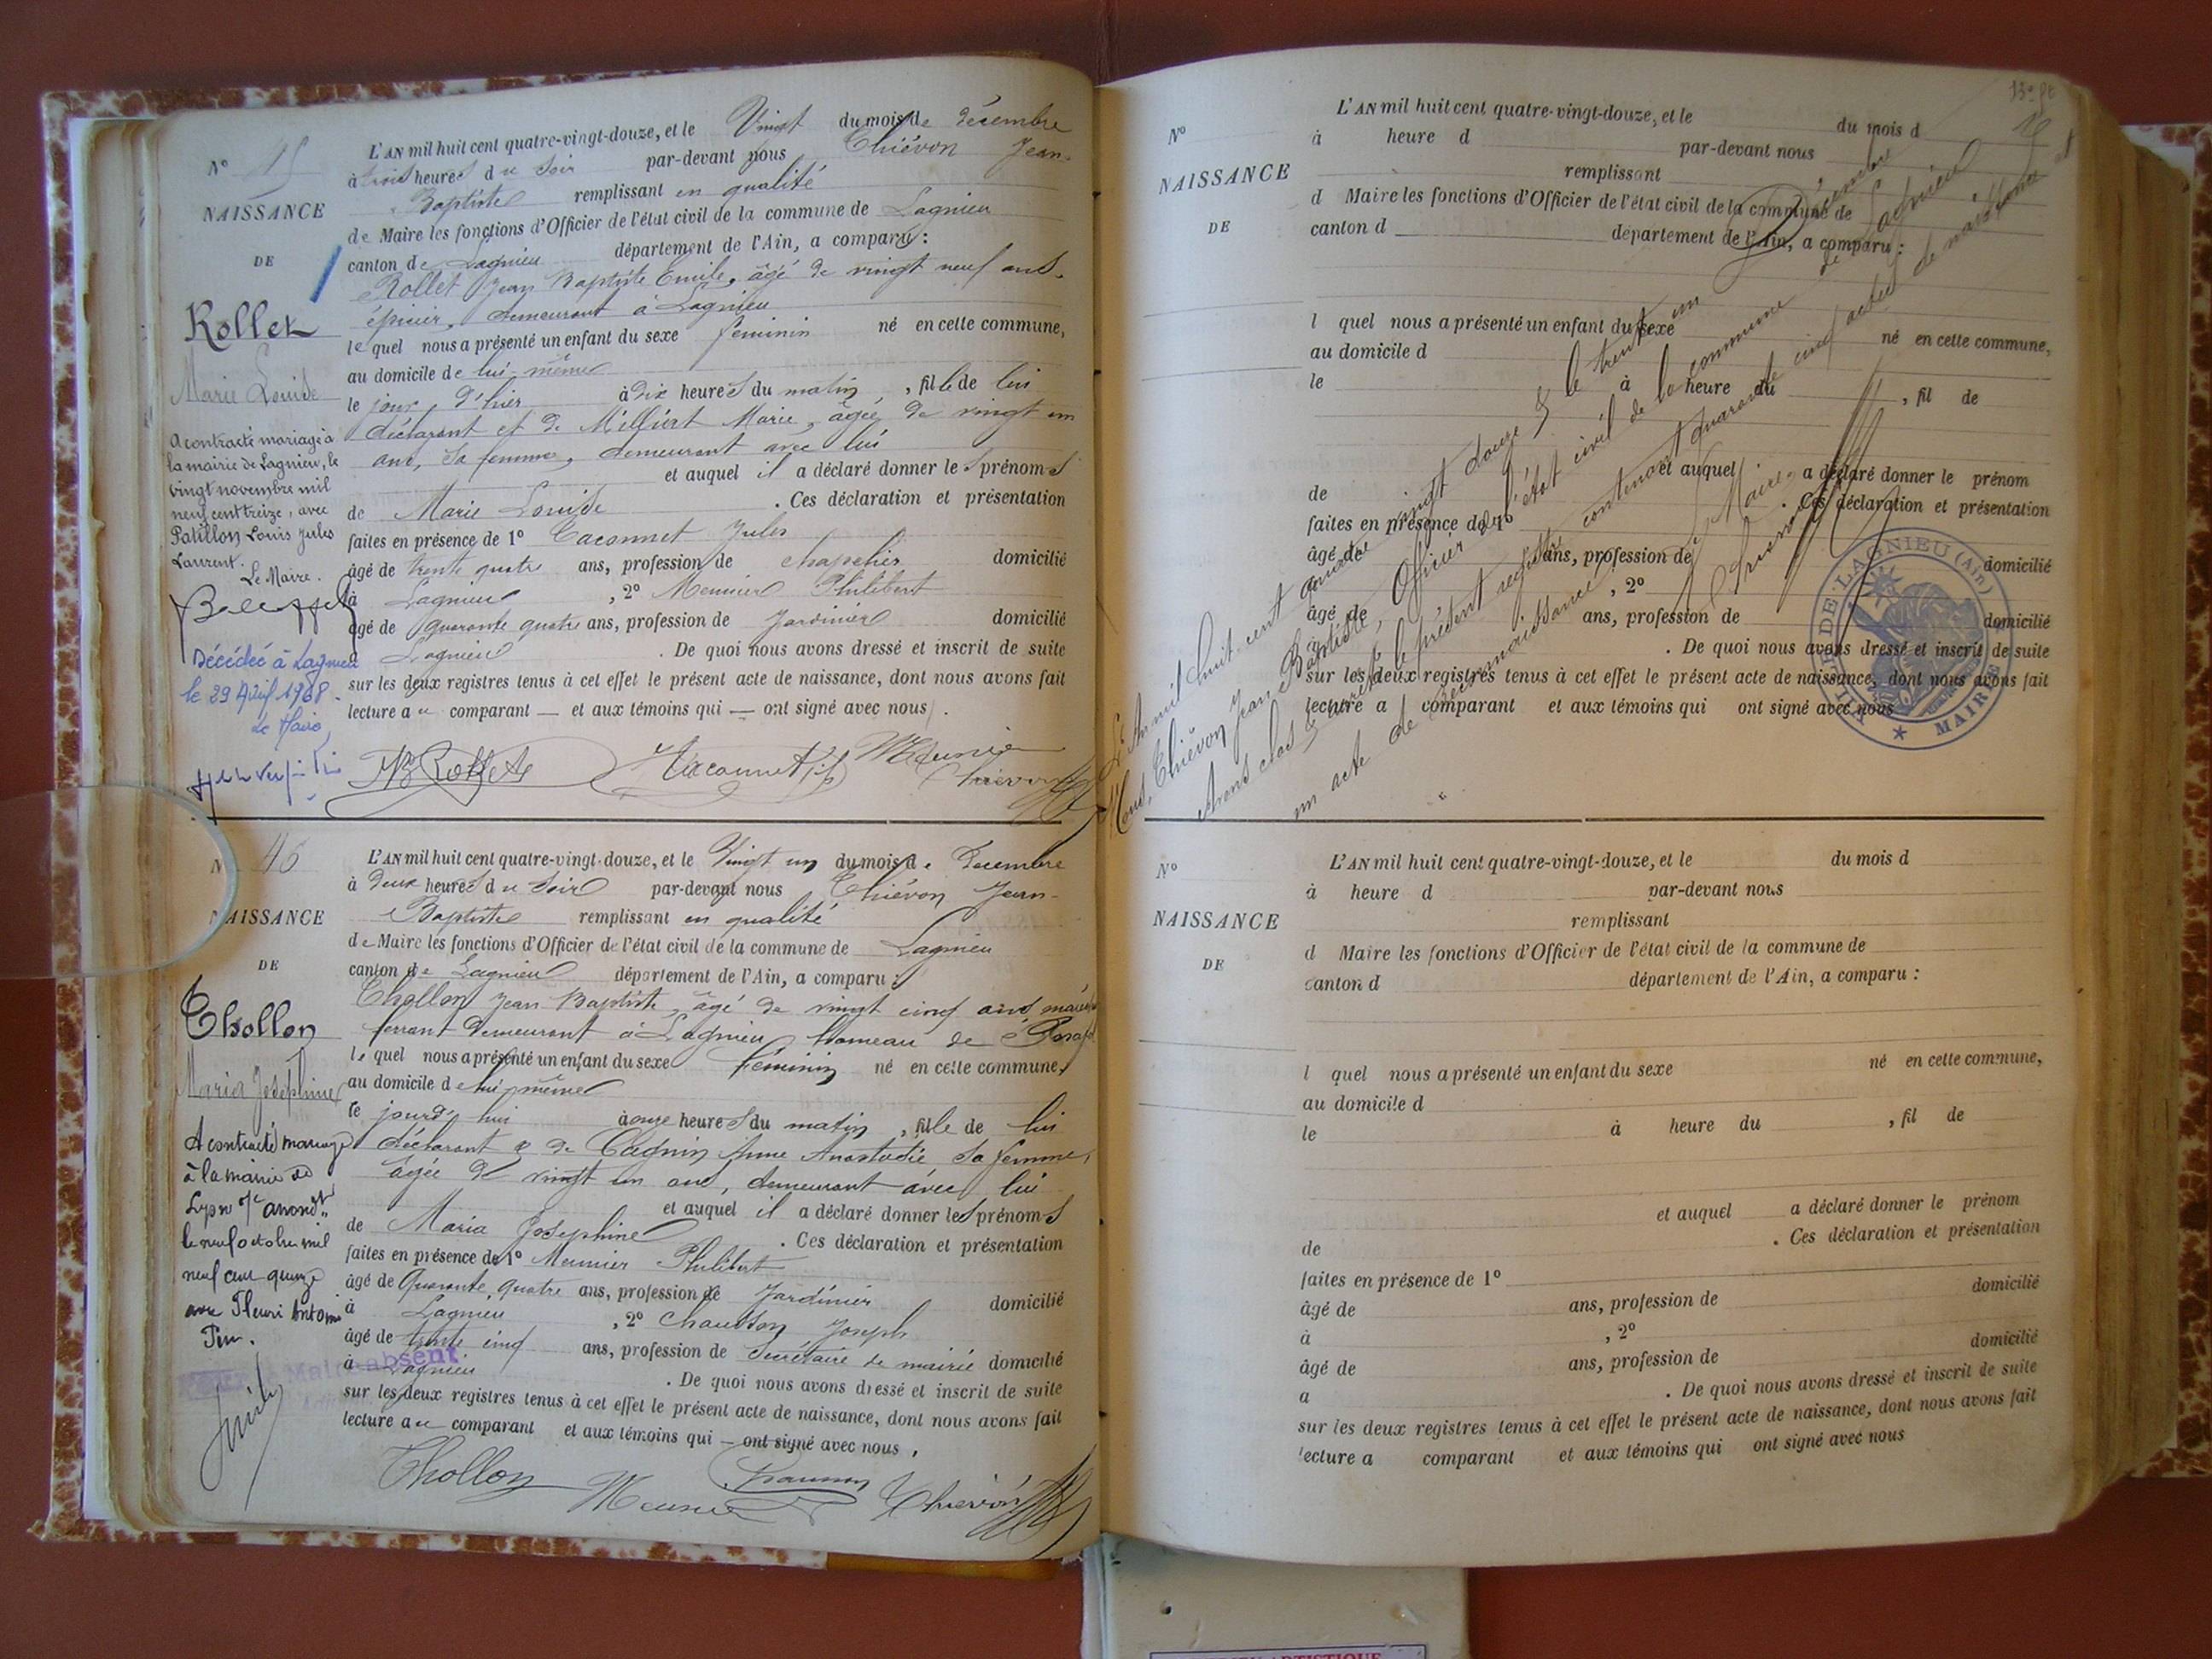 N° 45
NAISSANCE
DE
Rollet
Marie Louise
A contracté mariage à
la mairie de Lagnieu, le
vingt novembre mil
neuf cent treize, avec
Patillon Louis Jules
Laurent.
Le Maire.
Décédée à Lagnieu
le 29 Avril 1968.
Le Maire
L'AN mil huit cent quatre-vingt-douze, et le Vingt du mois de décembre
à trois heures du soir par-devant nous Chiévon Jean-
Baptiste remplissant en qualité
de Maire les fonctions d'Officier de l'état civil de la commune de Lagnieu
canton de Lagnieu département de l'Ain, a comparu :
Rollet Jean Baptiste Emile, âgé de vingt neuf ans,
épicier, demeurant à Lagnieu
lequel nous a présenté un enfant du sexe féminin né en cette commune,
au domicile de lui-même
le jour d'hier à dix heures du matin, fille de lui
déclarant et de Milliat Marie, âgée de vingt un
ans, sa femme, demeurant avec lui
et auquel il a déclaré donner les prénoms
de Marie Louise . Ces déclaration et présentation
faites en présence de 1° Taconnet Jules
âgé de trente quatre ans, profession de chapelier domicilié
à Lagnieu , 2° Meunier Philibert
âgé de quarante quatre ans, profession de Jardinier domicilié
à Lagnieu . De quoi nous avons dressé et inscrit de suite
sur les deux registres tenus à cet effet le présent acte de naissance, dont nous avons fait
lecture au comparant — et aux témoins qui — ont signé avec nous.
JB Rollet Taconnet Meunier
Chiévon
N° 46
NAISSANCE
DE
Thollon
Maria Joséphine
A contracté mariage
à la mairie de
Lyon
le neuf octobre mil
neuf cent quinze
avec Fleuri Antoine
absent
L'AN mil huit cent quatre-vingt-douze, et le Vingt un du mois de Decembre
à deux heures du Soir par-devant nous Chiévon Jean-
Baptiste remplissant en qualité
de Maire les fonctions d'Officier de l'état civil de la commune de Lagnieu
canton de Lagnieu département de l'Ain, a comparu :
Thollon Jean Baptiste, âgé de vingt cinq ans, maréchal
ferrant demeurant à Lagnieu, hameau de
lequel nous a présenté un enfant du sexe féminin né en cette commune,
au domicile de lui-même
le jourd'hui à onze heures du matin, fille de lui
déclarant & de Anne Anastasie sa femme,
âgée de vingt un ans, demeurant avec lui
et auquel il a déclaré donner les prénoms
de Maria Joséphine . Ces déclaration et présentation
faites en présence de 1° Meunier Philibert
âgé de Quarante quatre ans, profession de Jardinier domicilié
à Lagnieu , 2° Chausson Joseph
âgé de trente cinq ans, profession de Secrétaire de mairie domicilié
à Lagnieu . De quoi nous avons dressé et inscrit de suite
sur les deux registres tenus à cet effet le présent acte de naissance, dont nous avons fait
lecture au comparant et aux témoins qui — ont signé avec nous.
Thollon Meunier Chausson Chiévon
N°
NAISSANCE
DE
L'AN mil huit cent quatre-vingt-douze, et le du mois d
à heure d par-devant nous
remplissant
d Maire les fonctions d'Officier de l'état civil de la commune de
canton d département de l'Ain, a comparu :
l quel nous a présenté un enfant du sexe né en cette commune,
au domicile d
le à heure du , fil de
et auquel a déclaré donner le prénom
de . Ces déclaration et présentation
faites en présence de 1°
âgé de ans, profession de domicilié
à , 2°
âgé de ans, profession de domicilié
à . De quoi nous avons dressé et inscrit de suite
sur les deux registres tenus à cet effet le présent acte de naissance, dont nous avons fait
lecture a comparant et aux témoins qui ont signé avec nous
L'An mil huit cent quatre vingt douze & le trente un Décembre
Nous, Chiévon Jean Baptiste, Officier de l'état civil de la commune de Lagnieu
Avons clos & arrêté le présent registre contenant quarante cinq actes de naissance et
un acte de reconnaissance
Maire,
Chiévon
MAIRIE DE LAGNIEU (AIN)
MAIRE
N°
NAISSANCE
DE
L'AN mil huit cent quatre-vingt-douze, et le du mois d
à heure d par-devant nous
remplissant
d Maire les fonctions d'Officier de l'état civil de la commune de
canton d département de l'Ain, a comparu :
l quel nous a présenté un enfant du sexe né en cette commune,
au domicile d
le à heure du , fil de
et auquel a déclaré donner le prénom
de . Ces déclaration et présentation
faites en présence de 1°
âgé de ans, profession de domicilié
à , 2°
âgé de ans, profession de domicilié
a . De quoi nous avons dressé et inscrit de suite
sur les deux registres tenus à cet effet le présent acte de naissance, dont nous avons fait
lecture a comparant et aux témoins qui ont signé avec nous
ARTISTIQUE